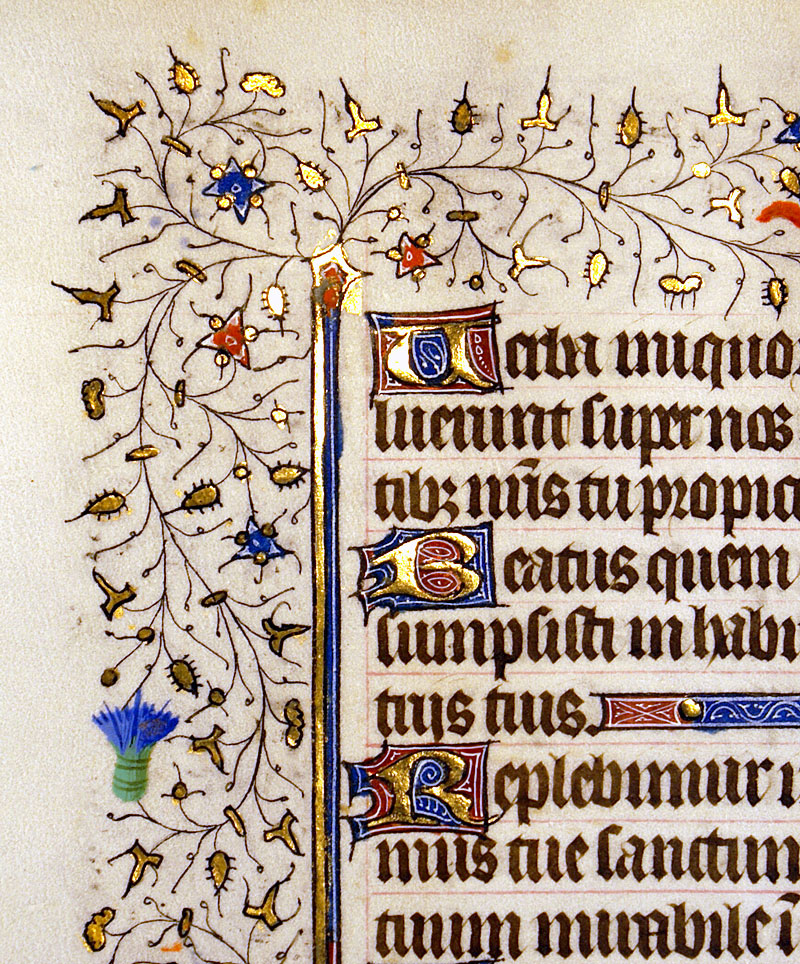 Uerba iniquo
luerunt super nos
tibꝫ nr̄is tu propici
Beatus quem
sumpsisti in habi
trijs tuis.
Replebimur i
mus tue sanctum
tuum mirabile ī